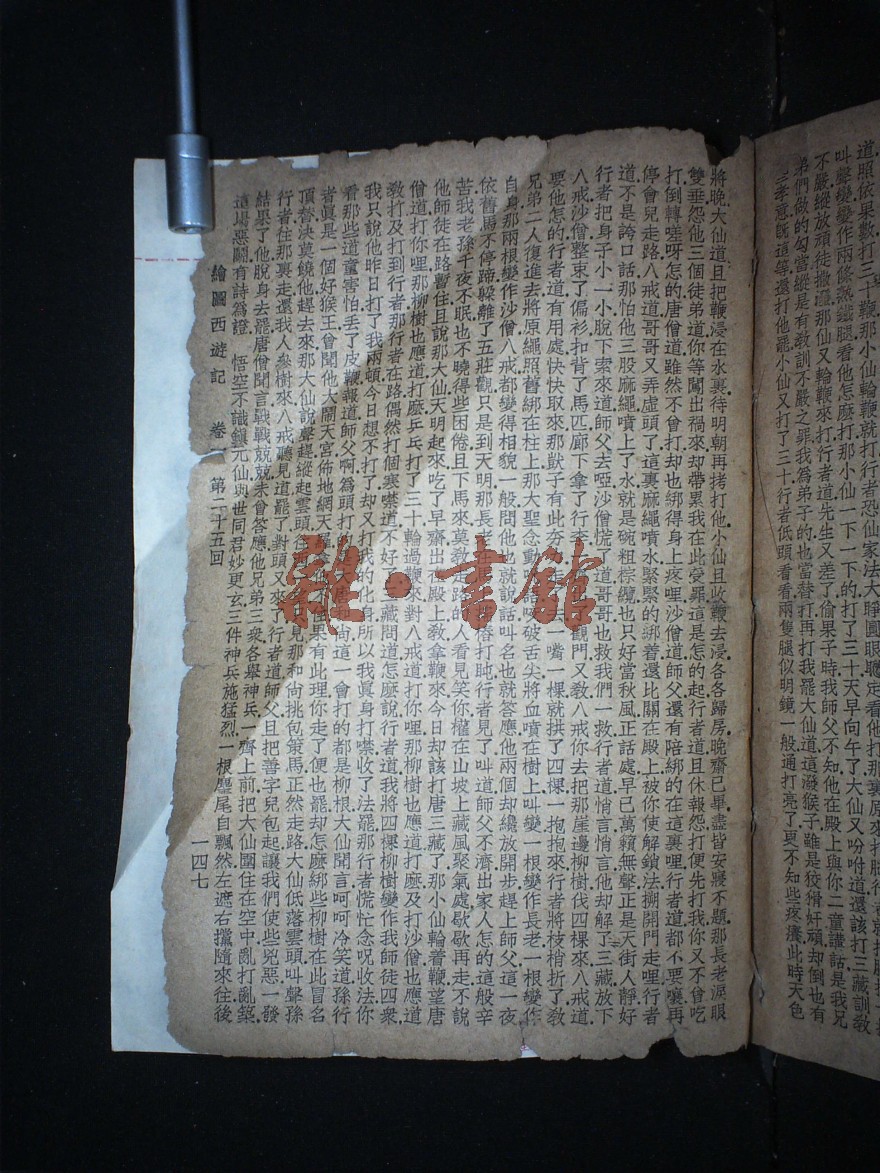 道照依果數打三十鞭那小仙輪鞭就打行者恐仙家法大睜圓眼瞅定看他打那裏原來打腿行者就把腰扭一
叫聲變變作兩條熟鐵腿看他怎麼打那小仙一下一下的打了三十天早向午了大仙又吩咐道還該打三藏訓教
不嚴縱放頑徒撒潑那仙又輪鞭來打行者道先生又差了偷果子時我師父不知他在殿上與你二童講話是我兄
弟們做的勾當縱是有教訓不嚴之罪我為弟子的也當替打再打我罷大仙道這潑猴子雖是狡猾奸頑却倒也有
些孝意既這等還打他罷小仙又打了三十行者低頭看看兩隻腿似明鏡一般通打亮了更不知些疼癢此時天色
將晚大仙道且把鞭浸在水裏待明朝再拷打他小仙且收鞭去浸各各歸房晚齋已畢盡皆安寢不題那長老淚眼
雙垂怨他三個徒弟道你等闖出禍來却帶累我在此受罪這是怎的起行者道且休報怨打便先打我你又不曾吃
打倒轉嗟呀怎的唐僧道雖然不曾打却也綁得身上疼哩沙僧道師父還有陪綁的在這裏哩行者道都不要嚷再
停會兒走路八戒道哥哥又弄虛頭了這裏麻繩噴水緊緊的綁着還比關在殿上被你使解鎖法搠開門走哩行者
道不是誇口話那怕他三股麻繩噴上了水就是碗粗棕纜也只好當秋風正話處早已萬籟無聲正是天街人靜好
行者把身子小一小脫下索來道師父去啞沙僧慌了道哥哥也救我們一救行者道悄言悄言他却解了三藏放下
八戒沙僧整束了偏衫扣背了馬匹廊下拿了行李觀門又教八戒你去把那崖邊柳樹伐四棵來八戒道
要他怎的行者道有用處快快取來那獃子有此夯一嘴一棵就拱了四棵一抱抱來行者將枝梢折了教
兄弟二人復進去將原繩照舊綁在柱上那大聖念動咬破舌尖將血噴在樹上叫變一根變作長老一根變作
自身那兩根變作沙僧八戒都變得相貌一般問他也就說話叫名也就答應他兩個却纔放開步趕上師父這一夜
依舊馬不停蹄躲離了五莊觀只是到天明那長打盹行者見了叫道師父不濟出家人怎的這般辛
苦我老孫千夜不眠也不曉得些困倦且下馬來莫教走路的人看見笑你權在山坡上藏風聚氣處歇歇再走不說
他師徒在路暫住且說那大仙天明起來吃了早齋出在殿上教拿鞭來今日却該打唐三藏了那小仙輪着鞭望唐
僧道打你哩那柳樹也應道打麼乒乓打了三十輪過鞭來對八戒道打你哩那柳樹也應道打麼及打沙僧也應道
教打及打到行者那行者在路偶然打個寒噤道不好藏問道怎麼說行者道我將四棵柳樹變作我師徒四衆
我只說他昨日打了我兩頓今日想不打了却又打我的化身所以我眞身打噤收了法罷那行者慌忙念咒收法你
看那些道童害怕丟了皮鞭報道師父啊為頭打尚這一會打的都是柳根大仙聞言呵呵冷笑道孫行
者眞是一個好猴王曾聞他大鬧天宮佈地網天果有此理你走了便也罷却怎麼綁些柳樹在此冒名
頂替决莫饒他趕去來那大仙說聲趕縱起雲頭往見那和尚挑包策馬正然走路大仙低落雲頭叫聲孫
行者往那裏走還我人參樹來八戒聽見道罷了對頭又來了行者道師父且把善字兒包起讓我們使些兇惡一發
結果了他脫身去罷唐僧聞言戰戰兢兢未曾答應他兄弟三衆各舉神兵一齊上前把大仙圍住在空中亂打亂築
這場惡鬬有詩爲證　悟空不識鎭元仙與世同君妙更玄三件神兵施猛烈一根麈尾自飄然左遮右攩隨來往後
繪圖西遊記　卷一　第二十五回
一四七
雜·書館